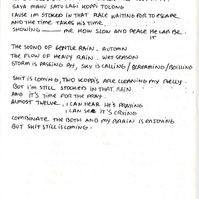 SAYA MAHU SATU LAGI KOPPI TOLONG
CAUSE IM STOCKED IN THAT RACE WAITING FOR TO ESCAPE
AND THE TIME TAKES HIS TIME
SHOWING ME HOW SLOW AND PEACE HE CAN BE
IT
THE SOUND OF GENTLE RAIN. AUTUMN
THE FLOW OF HEAVY RAIN. WET SEASON
STORM IS PAGING MY, SKY IS CALLING / SCREAMING / BOILING
SHIT IS COMING, TWO KOPPI'S ARE CLEANING MY BELLY.
BUT I'M STILL STOCKED IN THAT RAIN.
AND IT'S TIME FOR THE PRAY.
ALMOST TWELVE, I CAN HEAR HE'S PRAYING
I CAN SEE IT'S CRYING
COMBINATE THE BOTH AND MY BRAIN IS ENJOYING
BUT SHIT STILL IS COMING.